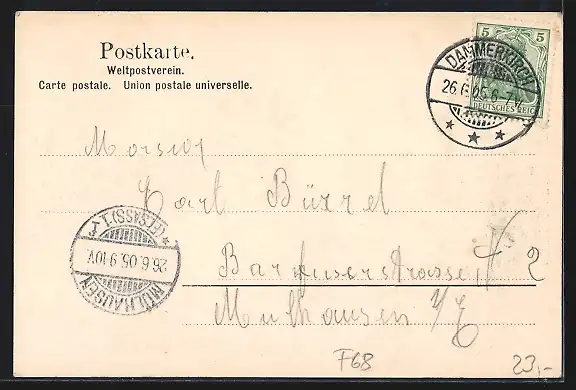 Postkarte.
Weltpostverein.
Carte postale. Union postale universelle.
5 5
DEUTSCHES REICH
DAMMERKIRCH
26.6.05.6-7
Carl
Barfuserstrasse № 2
Mulhausen i/E
MÜLHAUSEN
26.6.05.9-10V.
(ELSASS) 1
F68
23,-